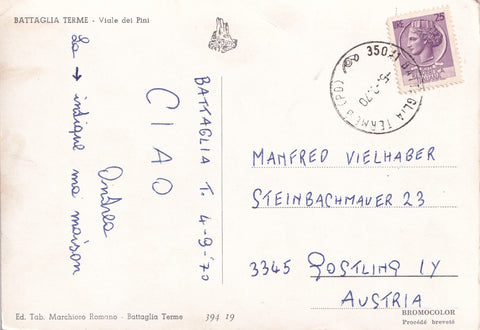 BATTAGLIA TERME - Viale dei Pini
BATTAGLIA T. 4-9-70
CIAO
Andrea
La → indique ma maison
LIRE 25
35041 BATTAGLIA TERME (PD)
MANFRED VIELHABER
STEINBACHMAUER 23
3345 GOSTLING IY
AUSTRIA
Ed. Tab. Marchioro Romano - Battaglia Terme
394 19
BROMOCOLOR
Procédé breveté